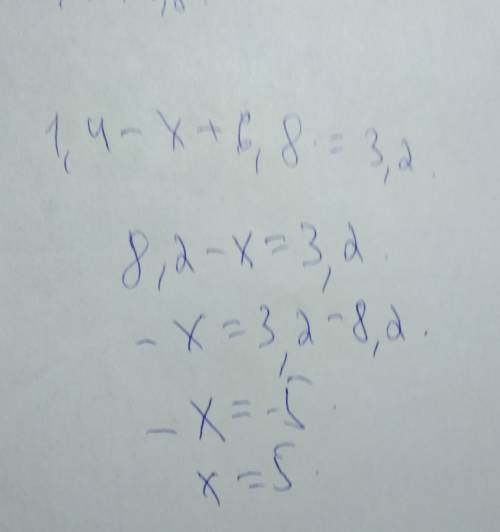 1,4 - x + 6,8 = 3,2
8,2 - x = 3,2
- x = 3,2 - 8,2
- x = -5
x = 5